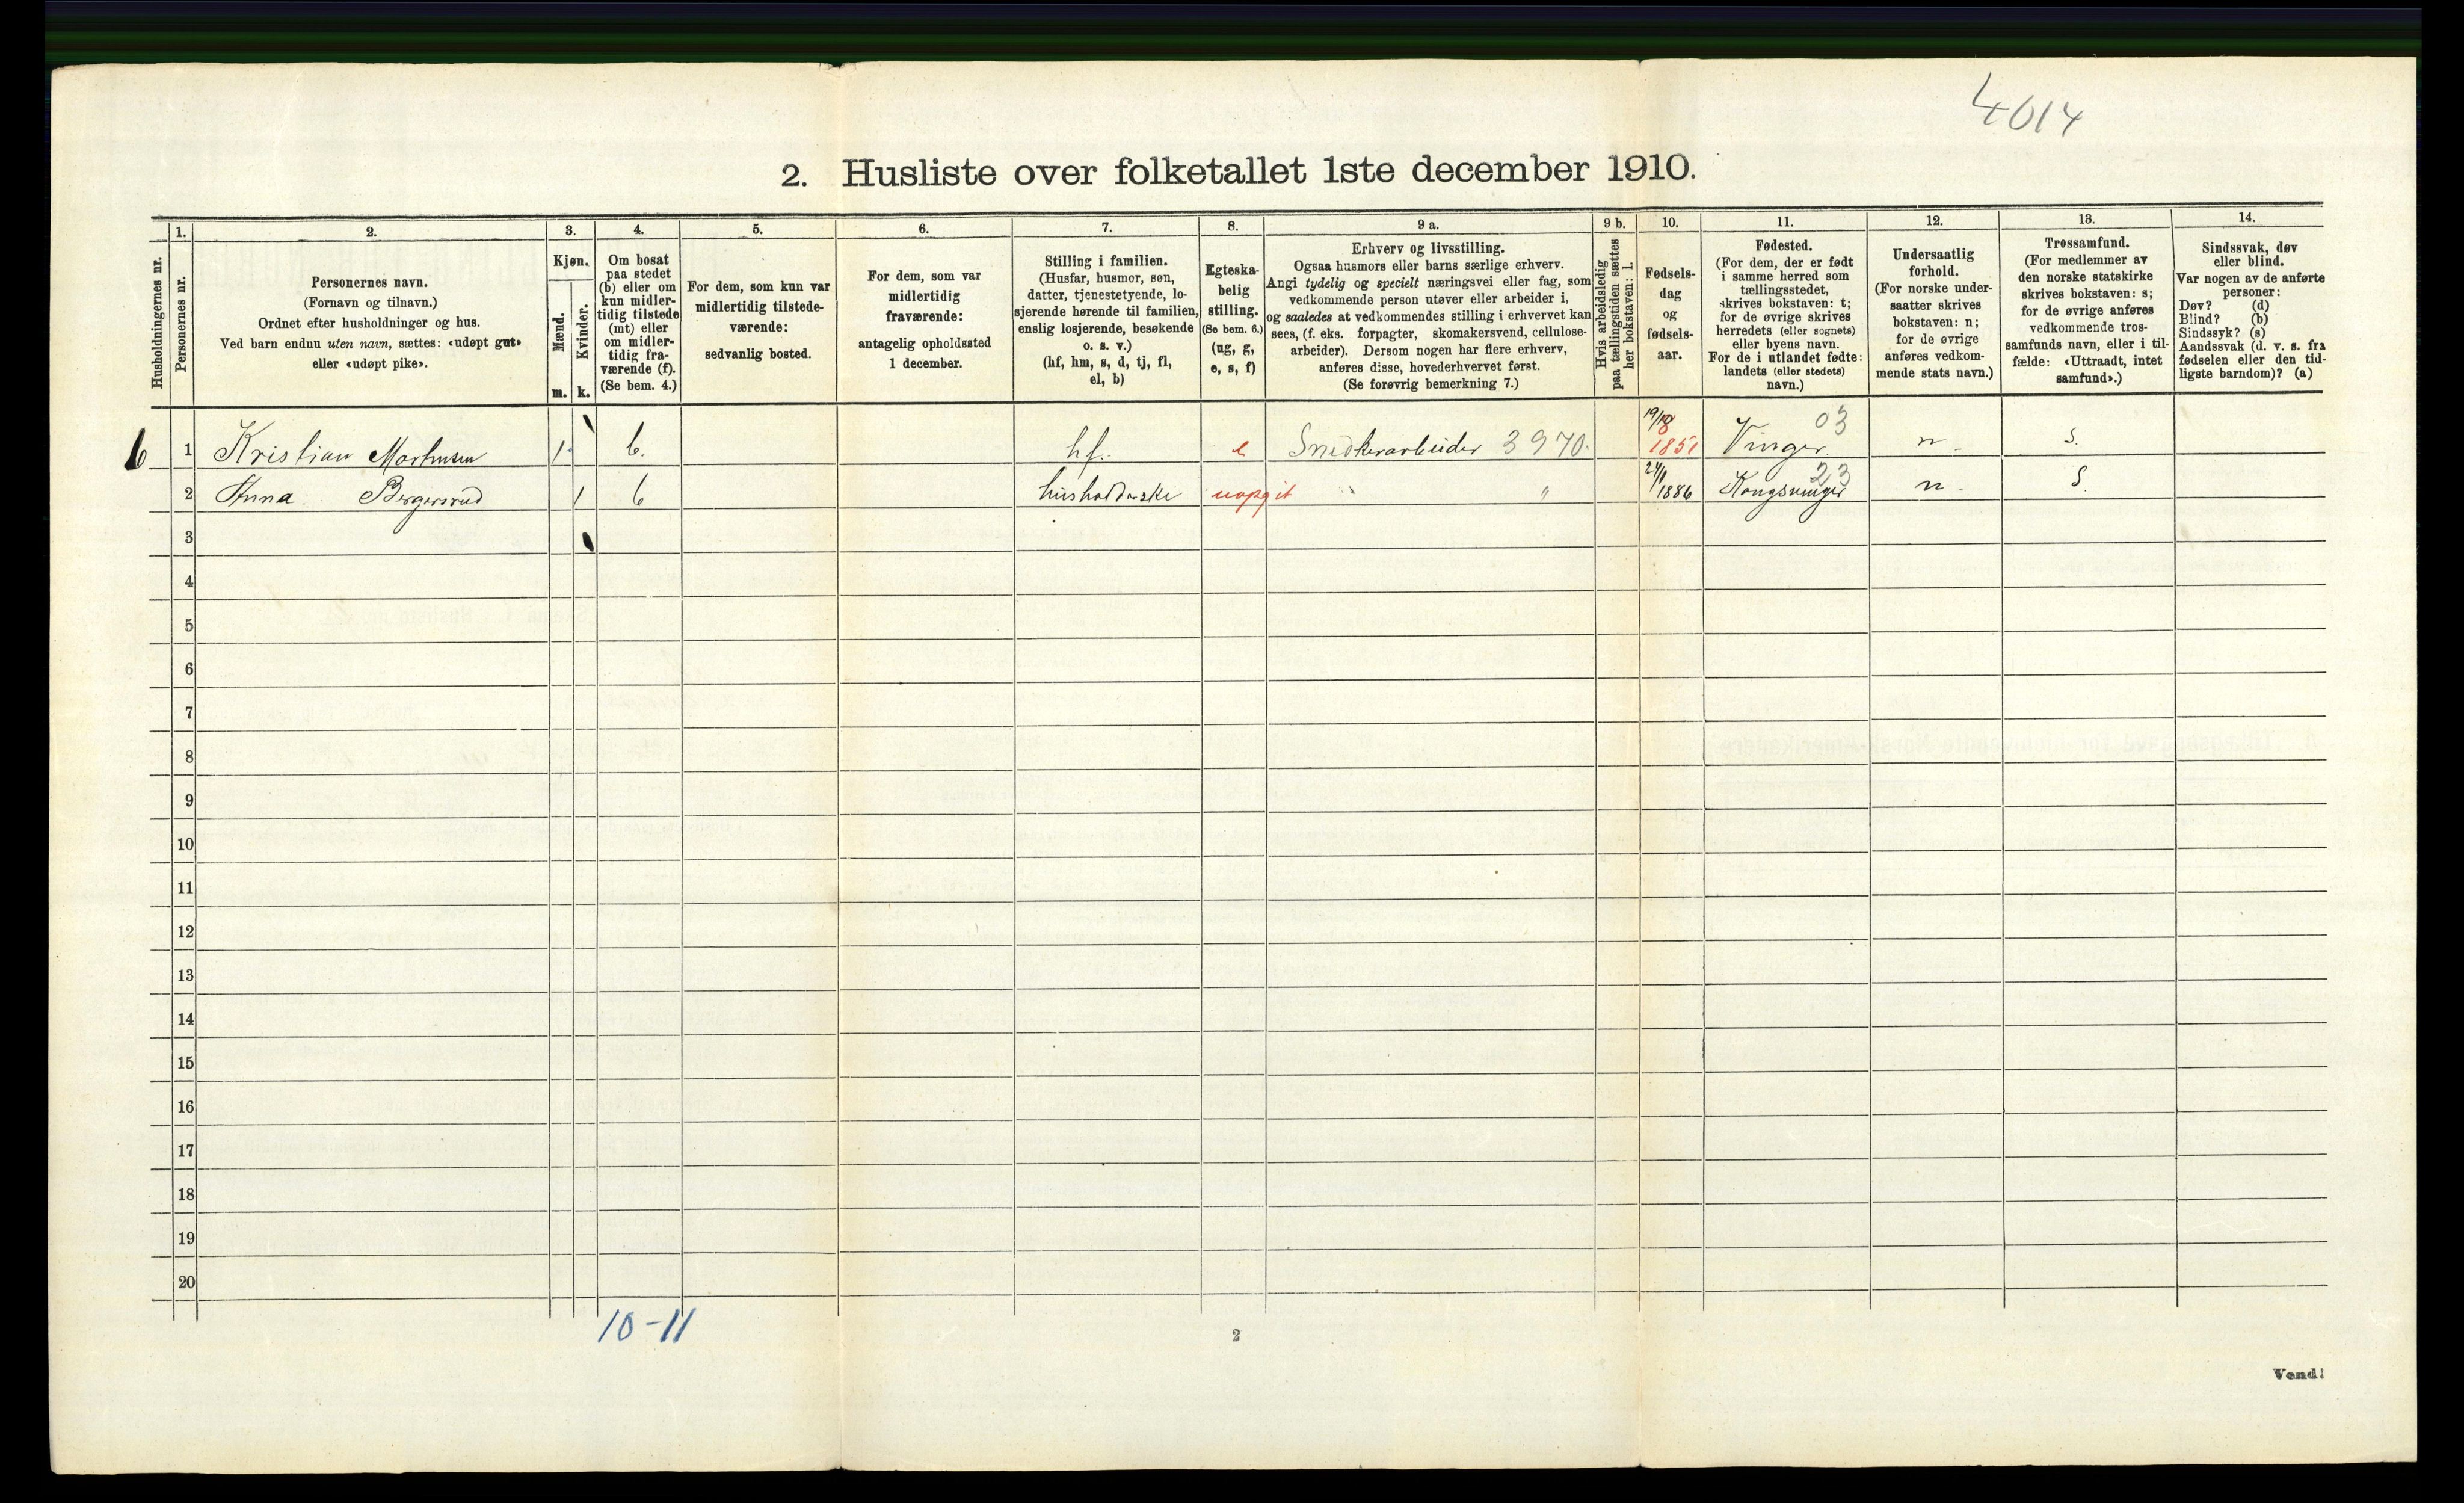 4014
2. Husliste over folketallet 1ste december 1910.
Husholdningernes nr.
1.
Personernes nr.
2.
Personernes navn.
(Fornavn og tilnavn.)
Ordnet efter husholdninger og hus.
Ved barn endnu uten navn, sættes: «udøpt gut»
eller «udøpt pike».
3.
Kjøn.
Mænd.
m.
Kvinder.
k.
4.
Om bosat
paa stedet
(b) eller om
kun midler-
tidig tilstede
(mt) eller
om midler-
tidig fra-
værende (f).
(Se bem. 4.)
5.
For dem, som kun var
midlertidig tilstede-
værende:
sedvanlig bosted.
6.
For dem, som var
midlertidig
fraværende:
antagelig opholdssted
1 december.
7.
Stilling i familien.
(Husfar, husmor, søn,
datter, tjenestetyende, lo-
sjerende hørende til familien,
enslig losjerende, besøkende
o. s. v.)
(hf, hm, s, d, tj, fl,
el, b)
8.
Egteska-
belig
stilling.
(Se bem. 6.)
(ug, g,
e, s, f)
9 a.
Erhverv og livsstilling.
Ogsaa husmors eller barns særlige erhverv.
Angi tydelig og specielt næringsvei eller fag, som
vedkommende person utøver eller arbeider i,
og saaledes at vedkommendes stilling i erhvervet kan
sees, (f. eks. forpagter, skomakersvend, cellulose-
arbeider). Dersom nogen har flere erhverv,
anføres disse, hovederhvervet først.
(Se forøvrig bemerkning 7.)
9 b.
Hvis arbeidsledig
paa tællingstiden sættes
her bokstaven: l.
10.
Fødsels-
dag
og
fødsels-
aar.
11.
Fødested.
(For dem, der er født
i samme herred som
tællingsstedet,
skrives bokstaven: t;
for de øvrige skrives
herredets (eller sognets)
eller byens navn.
For de i utlandet fødte:
landets (eller stedets)
navn.)
12.
Undersaatlig
forhold.
(For norske under-
saatter skrives
bokstaven: n;
for de øvrige
anføres vedkom-
mende stats navn.)
13.
Trossamfund.
(For medlemmer av
den norske statskirke
skrives bokstaven: s;
for de øvrige anføres
vedkommende tros-
samfunds navn, eller i til-
fælde: «Uttraadt, intet
samfund».)
14.
Sindssvak, døv
eller blind.
Var nogen av de anførte
personer:
Døv? (d)
Blind? (b)
Sindssyk? (s)
Aandssvak (d. v. s. fra
fødselen eller den tid-
ligste barndom)? (a)
1 Kristian 1 b. hf. e Snedkerarbeider 3970. 1851 Vinger 03 n s.
2 Anna Bergersrud 1 b husholderske uopgit " " 1886 Kongsvinger 23 n s.
3
4
5
6
7
8
9
10
11
12
13
14
15
16
17
18
19
20
10-11
2
Vend!